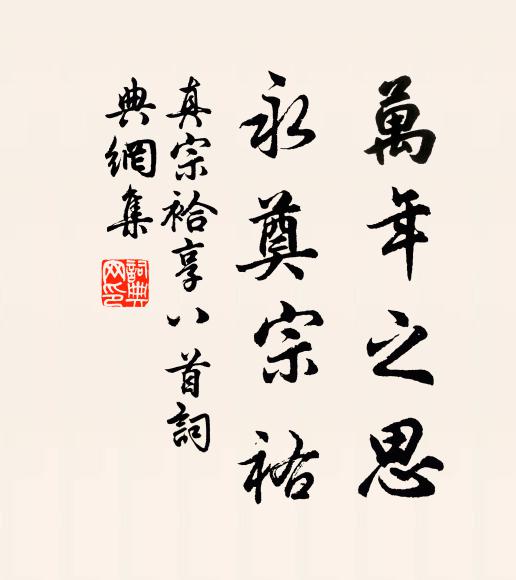 萬年之思
永奠宗祐
真宗祫享八首詞
典網集
詞典
网印